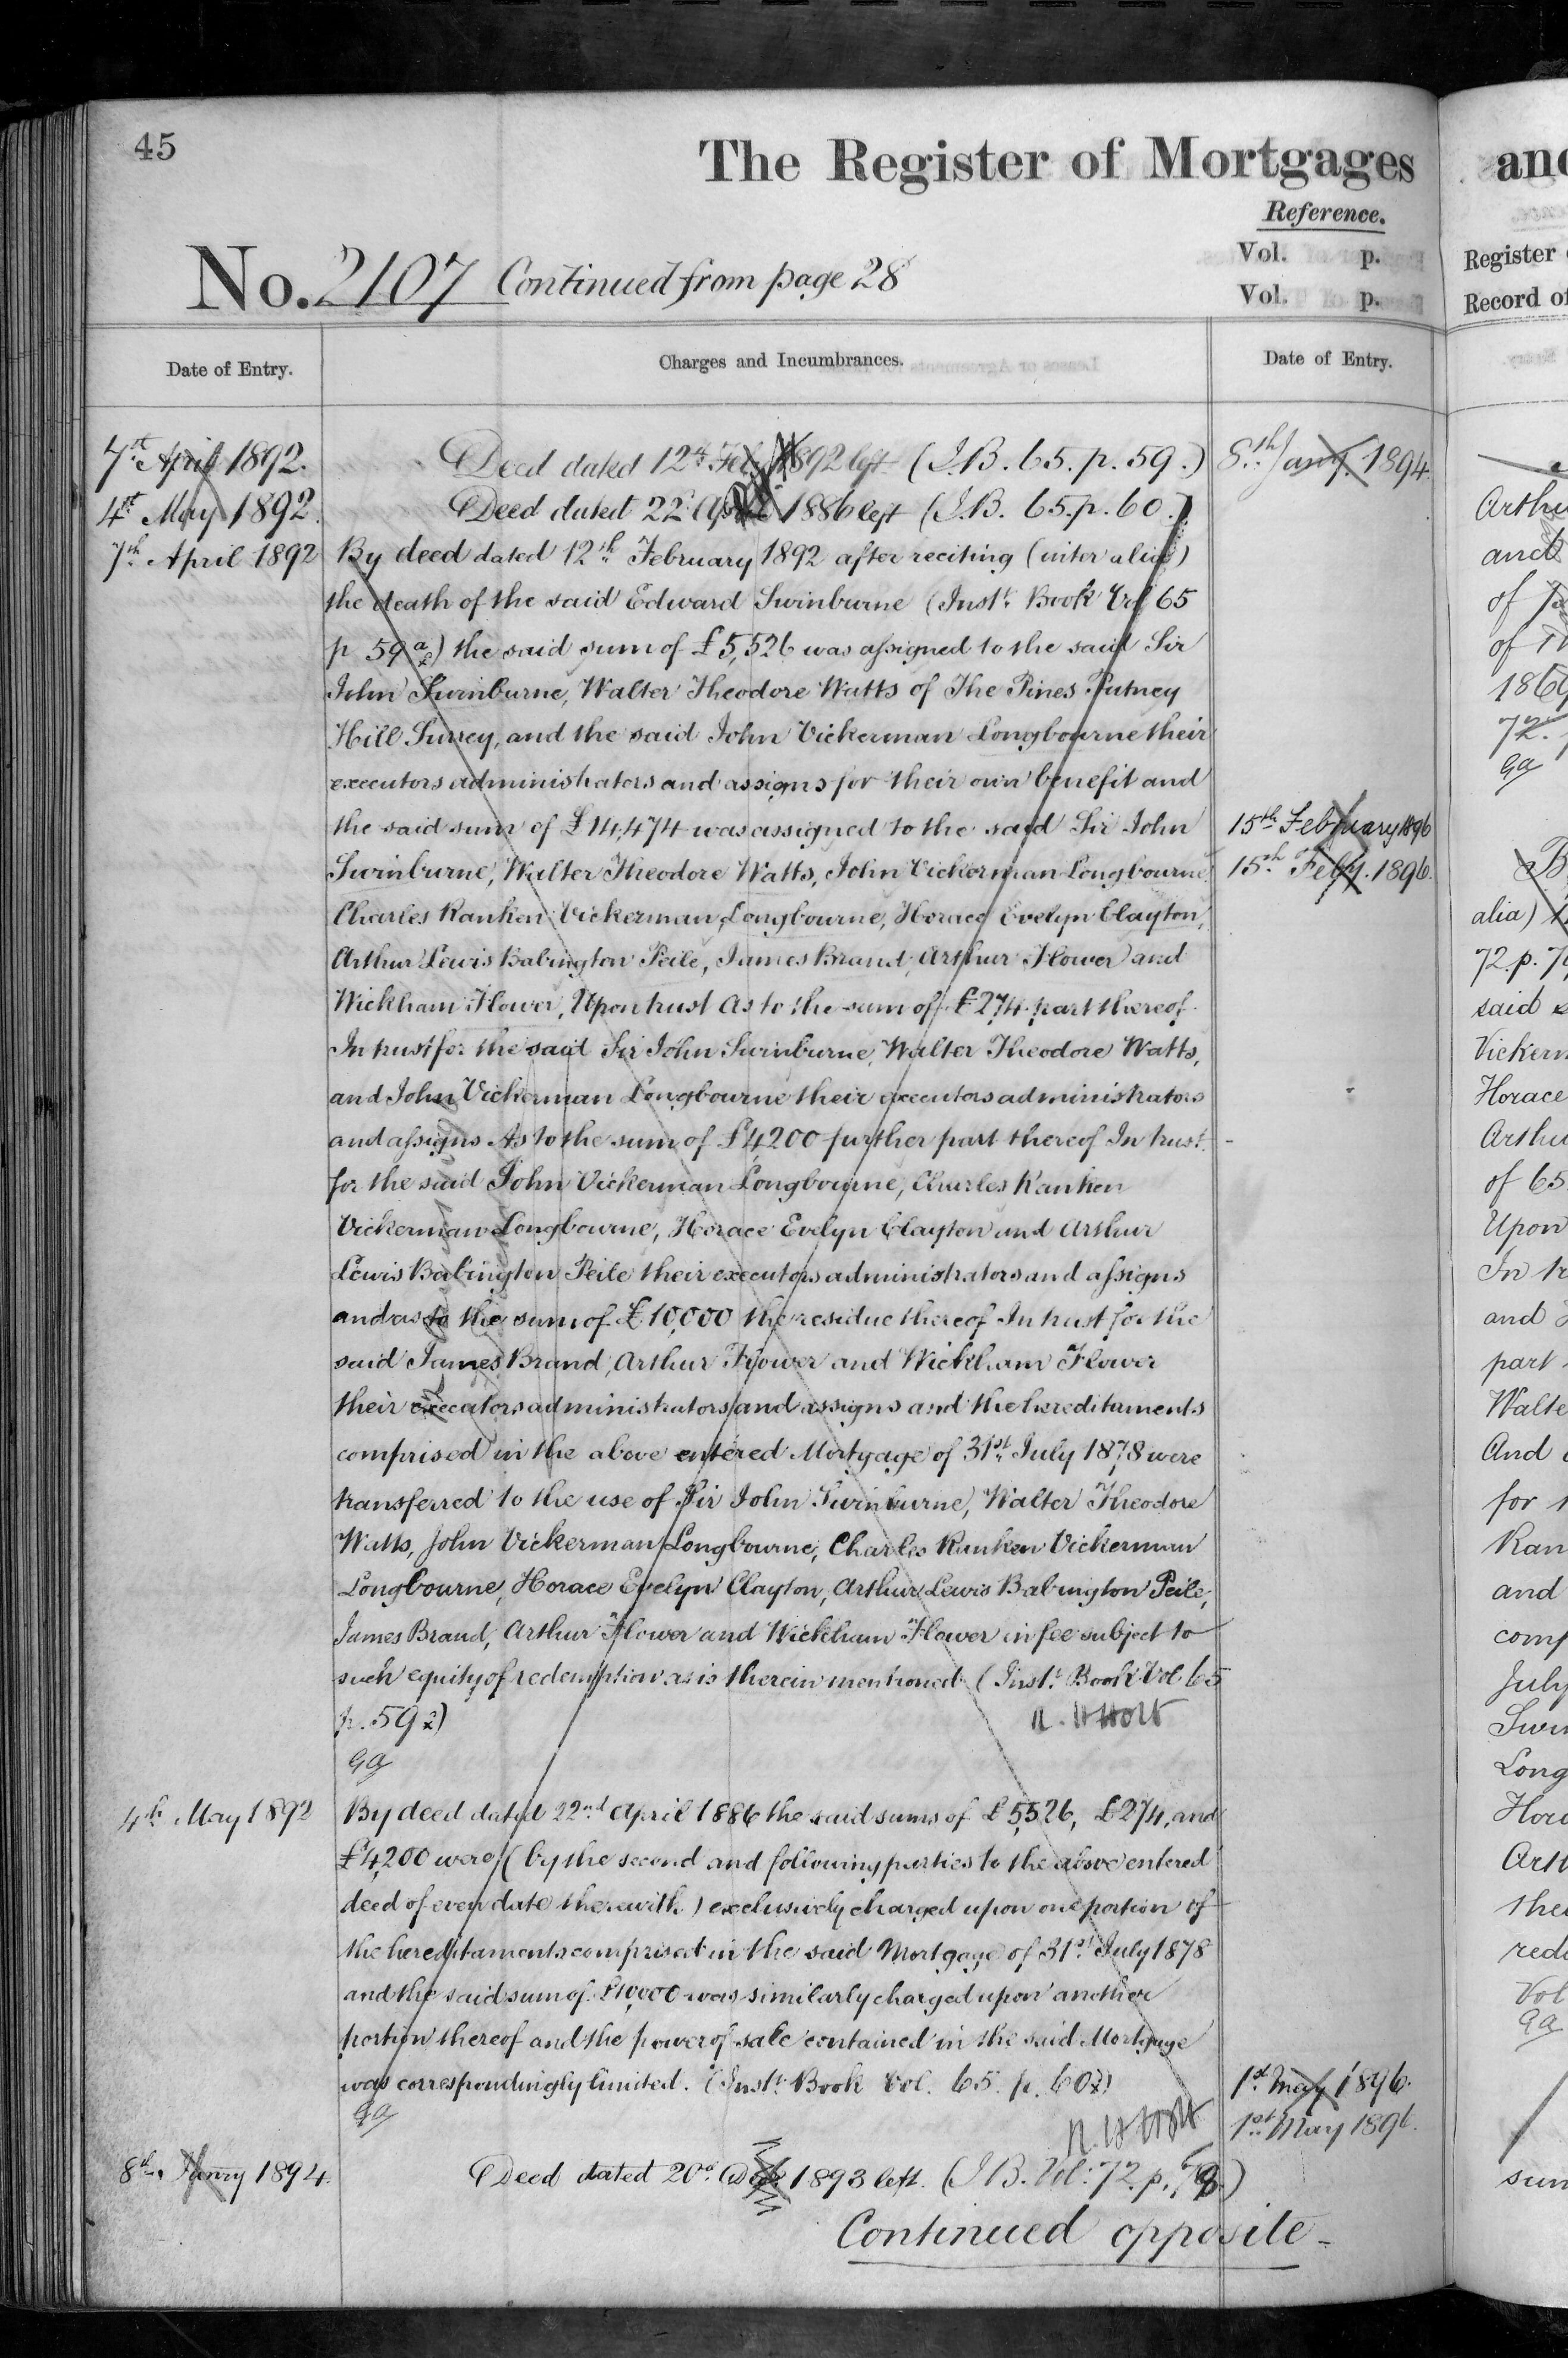 45
The Register of Mortgages
Reference.
Vol. p.
Vol. p.
No. 2107 Continued from page 28
Date of Entry.
Charges and Incumbrances.
Date of Entry.
7st April 1892.
Deed dated 12th Feb 1892 left (I.B. 65. p. 59.)
8th Jany. 1894.
4st May 1892.
Deed dated 22d April 1886 left (I.B. 65. p. 60.)
7th April 1892
By deed dated 12th February 1892 after reciting (inter alia)
the death of the said Edward Swinburne (Instt Book Vol 65
p 59 a) the said sum of £5,526 was assigned to the said Sir
John Swinburne, Walter Theodore Watts of The Pines Putney
Hill Surrey, and the said John Vickerman Longbourne their
executors administrators and assigns for their own benefit and
the said sum of £14,474 was assigned to the said Sir John
15th February 1896
Swinburne, Walter Theodore Watts, John Vickerman Longbourne,
15th Feby. 1896.
Charles Ranken Vickerman Longbourne, Horace Evelyn Clayton,
Arthur Lewis Babington Peile, James Brand, Arthur Flower and
Wickham Flower, Upon trust As to the sum of £274 part thereof
In trust for the said Sir John Swinburne, Walter Theodore Watts,
and John Vickerman Longbourne their executors administrators
and assigns As to the sum of £4,200 further part thereof In trust
for the said John Vickerman Longbourne, Charles Ranken
Vickerman Longbourne, Horace Evelyn Clayton and Arthur
Lewis Babington Peile their executors administrators and assigns
and as to the sum of £10,000 the residue thereof In trust for the
said James Brand, Arthur Flower and Wickham Flower
their executors administrators and assigns and the hereditaments
comprised in the above entered Mortgage of 31st July 1878 were
transferred to the use of Sir John Swinburne, Walter Theodore
Watts, John Vickerman Longbourne, Charles Ranken Vickerman
Longbourne, Horace Evelyn Clayton, Arthur Lewis Babington Peile,
James Brand, Arthur Flower and Wickham Flower in fee subject to
such equity of redemption as is therein mentioned (Instt Book Vol 65
p. 59
Holt
4th May 1892
By deed dated 22nd April 1886 the said sums of £5,526, £274, and
£4,200 were (by the second and following parties to the above entered
deed of even date therewith) exclusively charged upon one portion of
the hereditaments comprised in the said Mortgage of 31st July 1878
and the said sum of £10,000 was similarly charged upon another
portion thereof and the power of sale contained in the said Mortgage
was correspondingly limited. (Instt Book Vol. 65. p. 60
1st May 1896.
1st May 1896.
8th Janry 1894.
Deed dated 20d Dec 1893 left. (I.B. Vol: 72. p.
Continued opposite
and
Register
Record of
and
of
of
1869
72.
alia)
72. p.
said
Vickerm
Horace
of 65
Upon
and
part
Walte
And
for
Ran
and
comp
July
Swin
Long
Vol